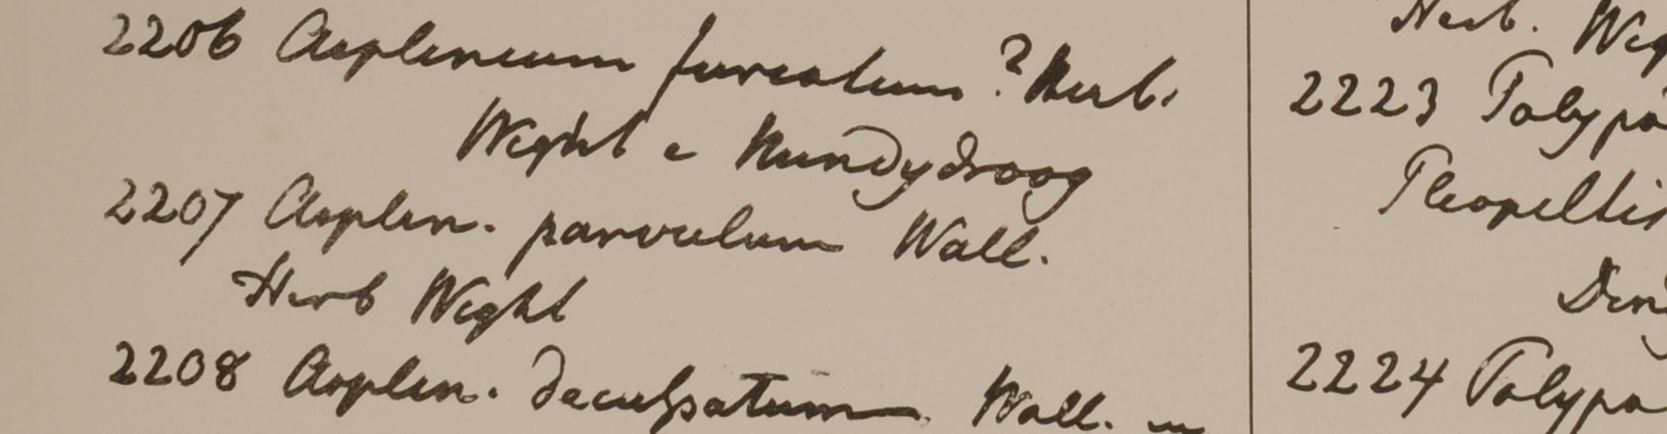 2206 Asplenium furcatum? Herb.
Wight e Nundydroog
2207 Asplen. parvulum Wall.
Herb Wight
2208 Asplen. decussatum Wall.
Herb. Wig
2223 Polypo
Pleopeltis
Din
2224 Polypo